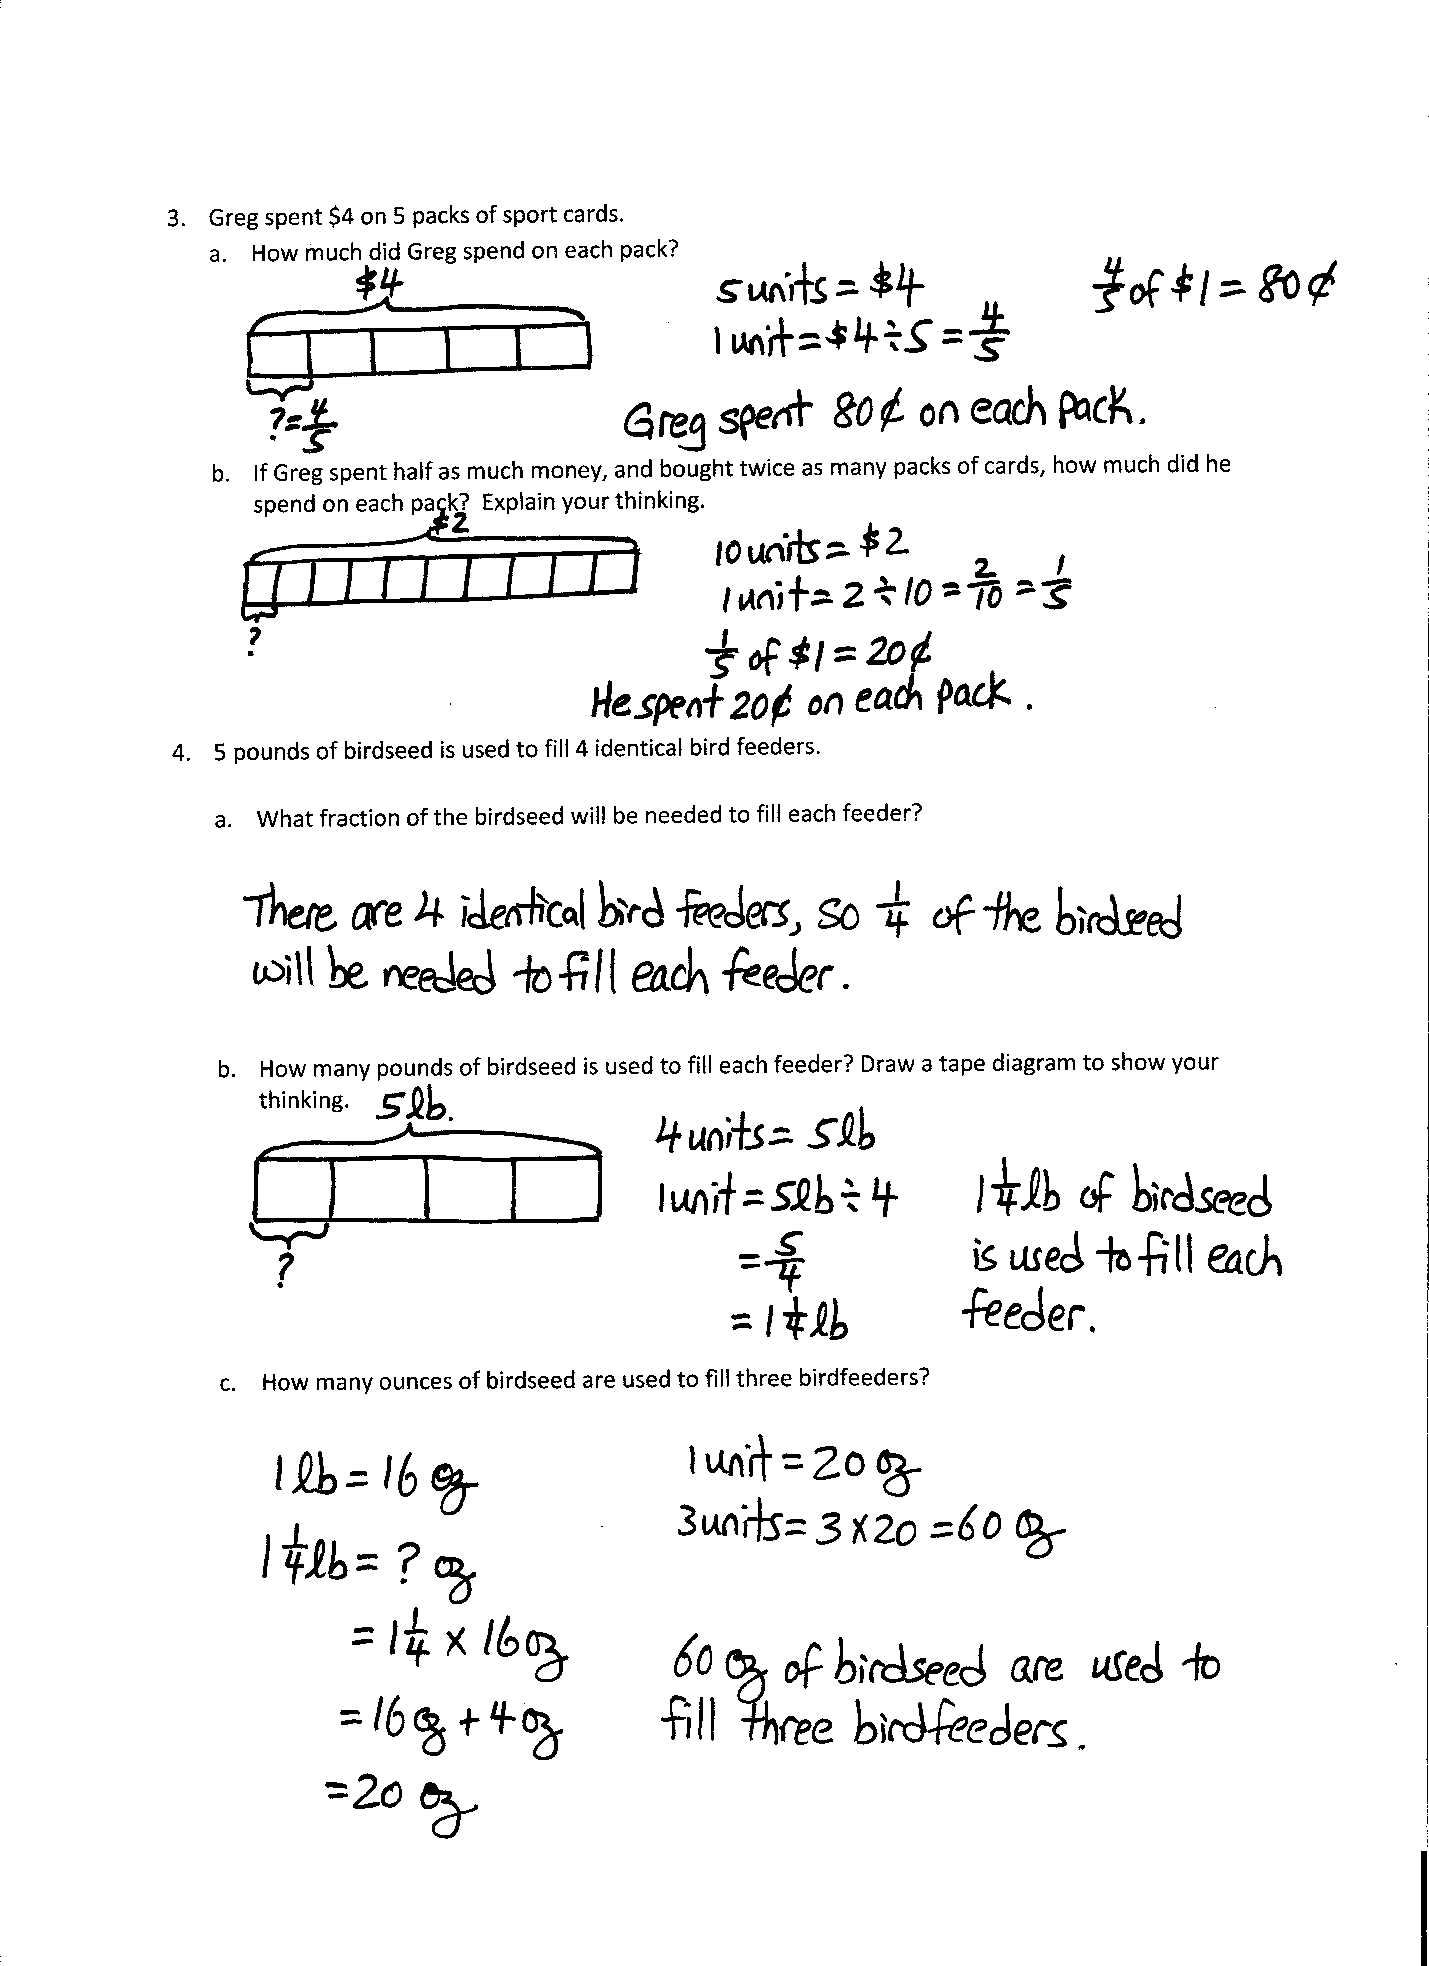 3. Greg spent $4 on 5 packs of sport cards.
a. How much did Greg spend on each pack?
$4
5 units = $4
4/5 of $1 = 80¢
1 unit = $4 ÷ 5 = 4/5
? = 4/5
Greg spent 80¢ on each pack.
b. If Greg spent half as much money, and bought twice as many packs of cards, how much did he
spend on each pack? Explain your thinking.
$2
10 units = $2
1 unit = 2 ÷ 10 = 2/10 = 1/5
?
1/5 of $1 = 20¢
He spent 20¢ on each pack.
4. 5 pounds of birdseed is used to fill 4 identical bird feeders.
a. What fraction of the birdseed will be needed to fill each feeder?
There are 4 identical bird feeders, so 1/4 of the birdseed
will be needed to fill each feeder.
b. How many pounds of birdseed is used to fill each feeder? Draw a tape diagram to show your
thinking.
5 lb.
?
4 units = 5 lb
1 unit = 5 lb ÷ 4
= 5/4
= 1 1/4 lb
1 1/4 lb of birdseed
is used to fill each
feeder.
c. How many ounces of birdseed are used to fill three birdfeeders?
1 lb = 16 oz
1 1/4 lb = ? oz
= 1 1/4 x 16 oz
= 16 oz + 4 oz
= 20 oz
1 unit = 20 oz
3 units = 3 x 20 = 60 oz
60 oz of birdseed are used to
fill three birdfeeders.